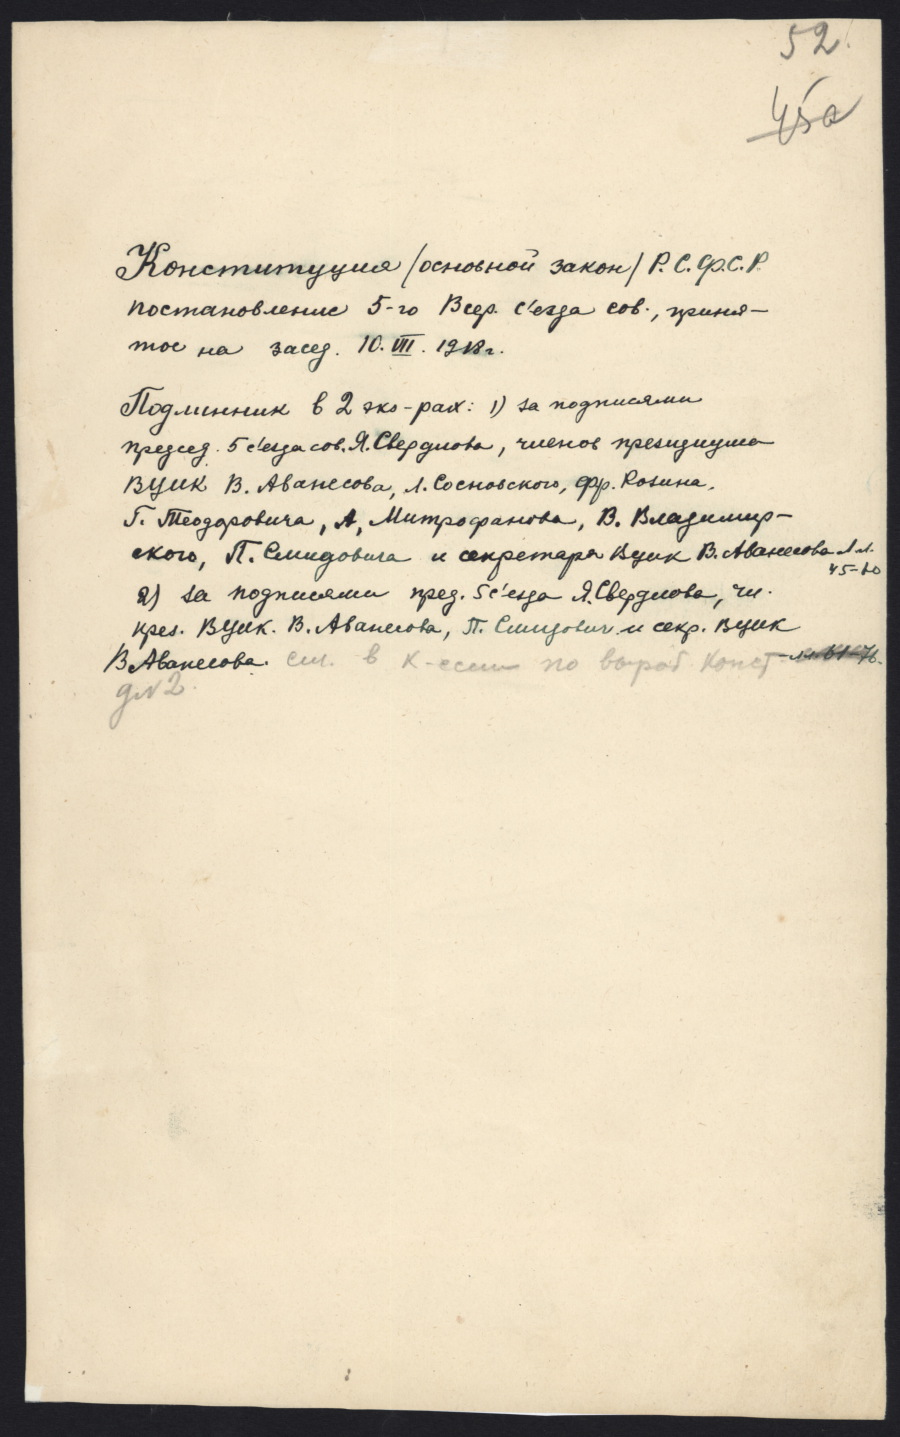 52
45а
Конституция /основной закон/ Р.С.Ф.С.Р.
постановление 5-го Всер. с'езда сов., приня-
тое на засед. 10.VII.1918г.
Подлинник в 2 экз-рах: 1) за подписями
председ. 5 с'езда сов. Я. Свердлова, членов президиума
ВЦИК В. Аванесова, Л. Сосновского, Фр. Розина,
Г. Теодоровича, А. Митрофанова, В. Владимир-
ского, П. Смидовича и секретаря ВЦИК В. Аванесова л.л.
45-60
2) за подписями пред. 5 с'езда Я. Свердлова, чл.
през. ВЦИК. В. Аванесова, П. Смидович и секр. ВЦИК
В Аванесова. см. в к-ссии по выраб. Конст - л.л. 61-76.
д№2.